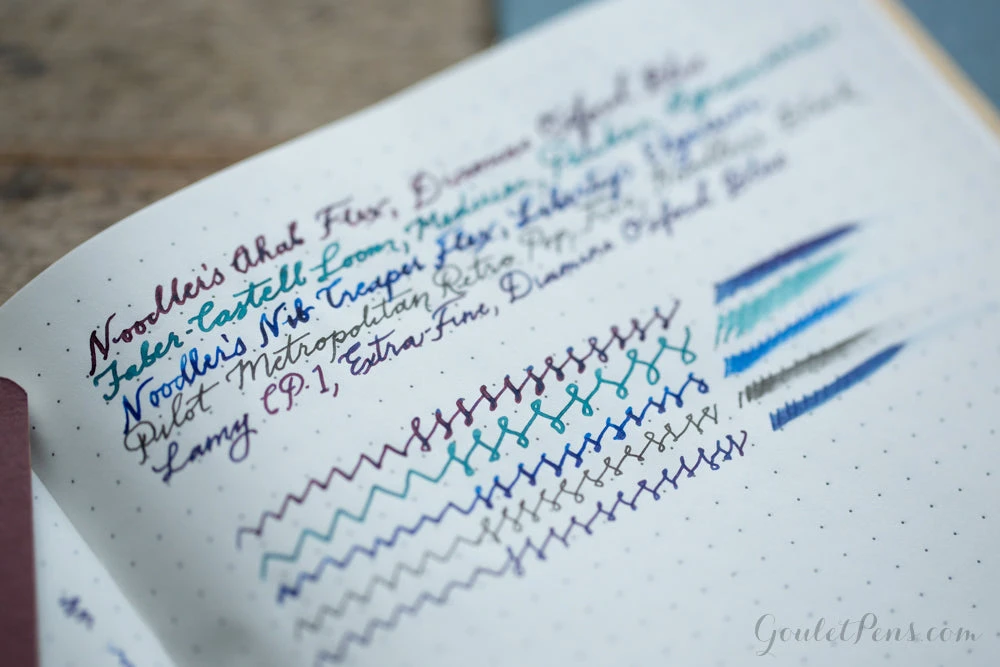 Noodler's Ahab Flex, Diamine Oxford Blue
Faber-Castell Loom, Medium,
Noodler's Nib Creaper Flex, Liberty's Elysium
Pilot Metropolitan Retro Pop, Fine, Black
Lamy CP.1, Extra-Fine, Diamine Oxford Blue
GouletPens.com